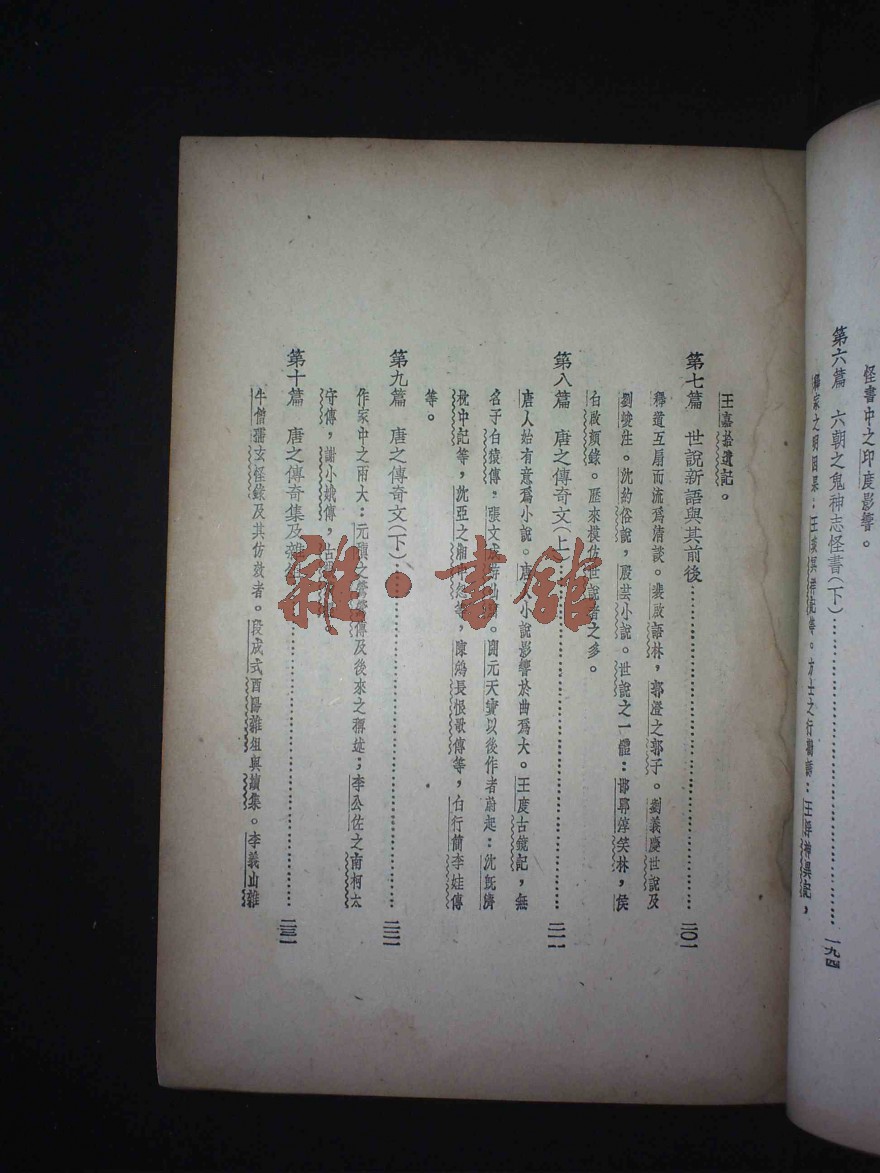 怪書中之印度影響。
第六篇 六朝之鬼神志怪書(下)……一九四
釋家之明因果：王琰冥祥記等。方士之行勸誘：王浮神異記，
王嘉拾遺記。
第七篇 世說新語與其前後……二〇一
釋道互扇而流爲清談。裴啟語林，郭澄之郭子。劉義慶世說及
劉孝生。沈約俗說，殷芸小說。世說之一體：邯鄲淳笑林，侯
白啟顏錄。歷來模仿世說者之多。
第八篇 唐之傳奇文(上)……二一一
唐人始有意爲小說。唐人小說影響於曲爲大。王度古鏡記，無
名子白猿傳。張文成游仙窟。開元天寶以後作者蔚起：沈既濟
枕中記等，沈亞之湘中怨等，陳鴻長恨歌傳等，白行簡李娃傳
等。
第九篇 唐之傳奇文(下)……二二二
作家中之兩大：元稹之鶯鶯傳及後來之稱述；李公佐之南柯太
守傳，謝小娥傳，古
第十篇 唐之傳奇集及雜俎……二三二
牛僧孺玄怪錄及其仿效者。段成式酉陽雜俎與續集。李義山雜
雜·書館